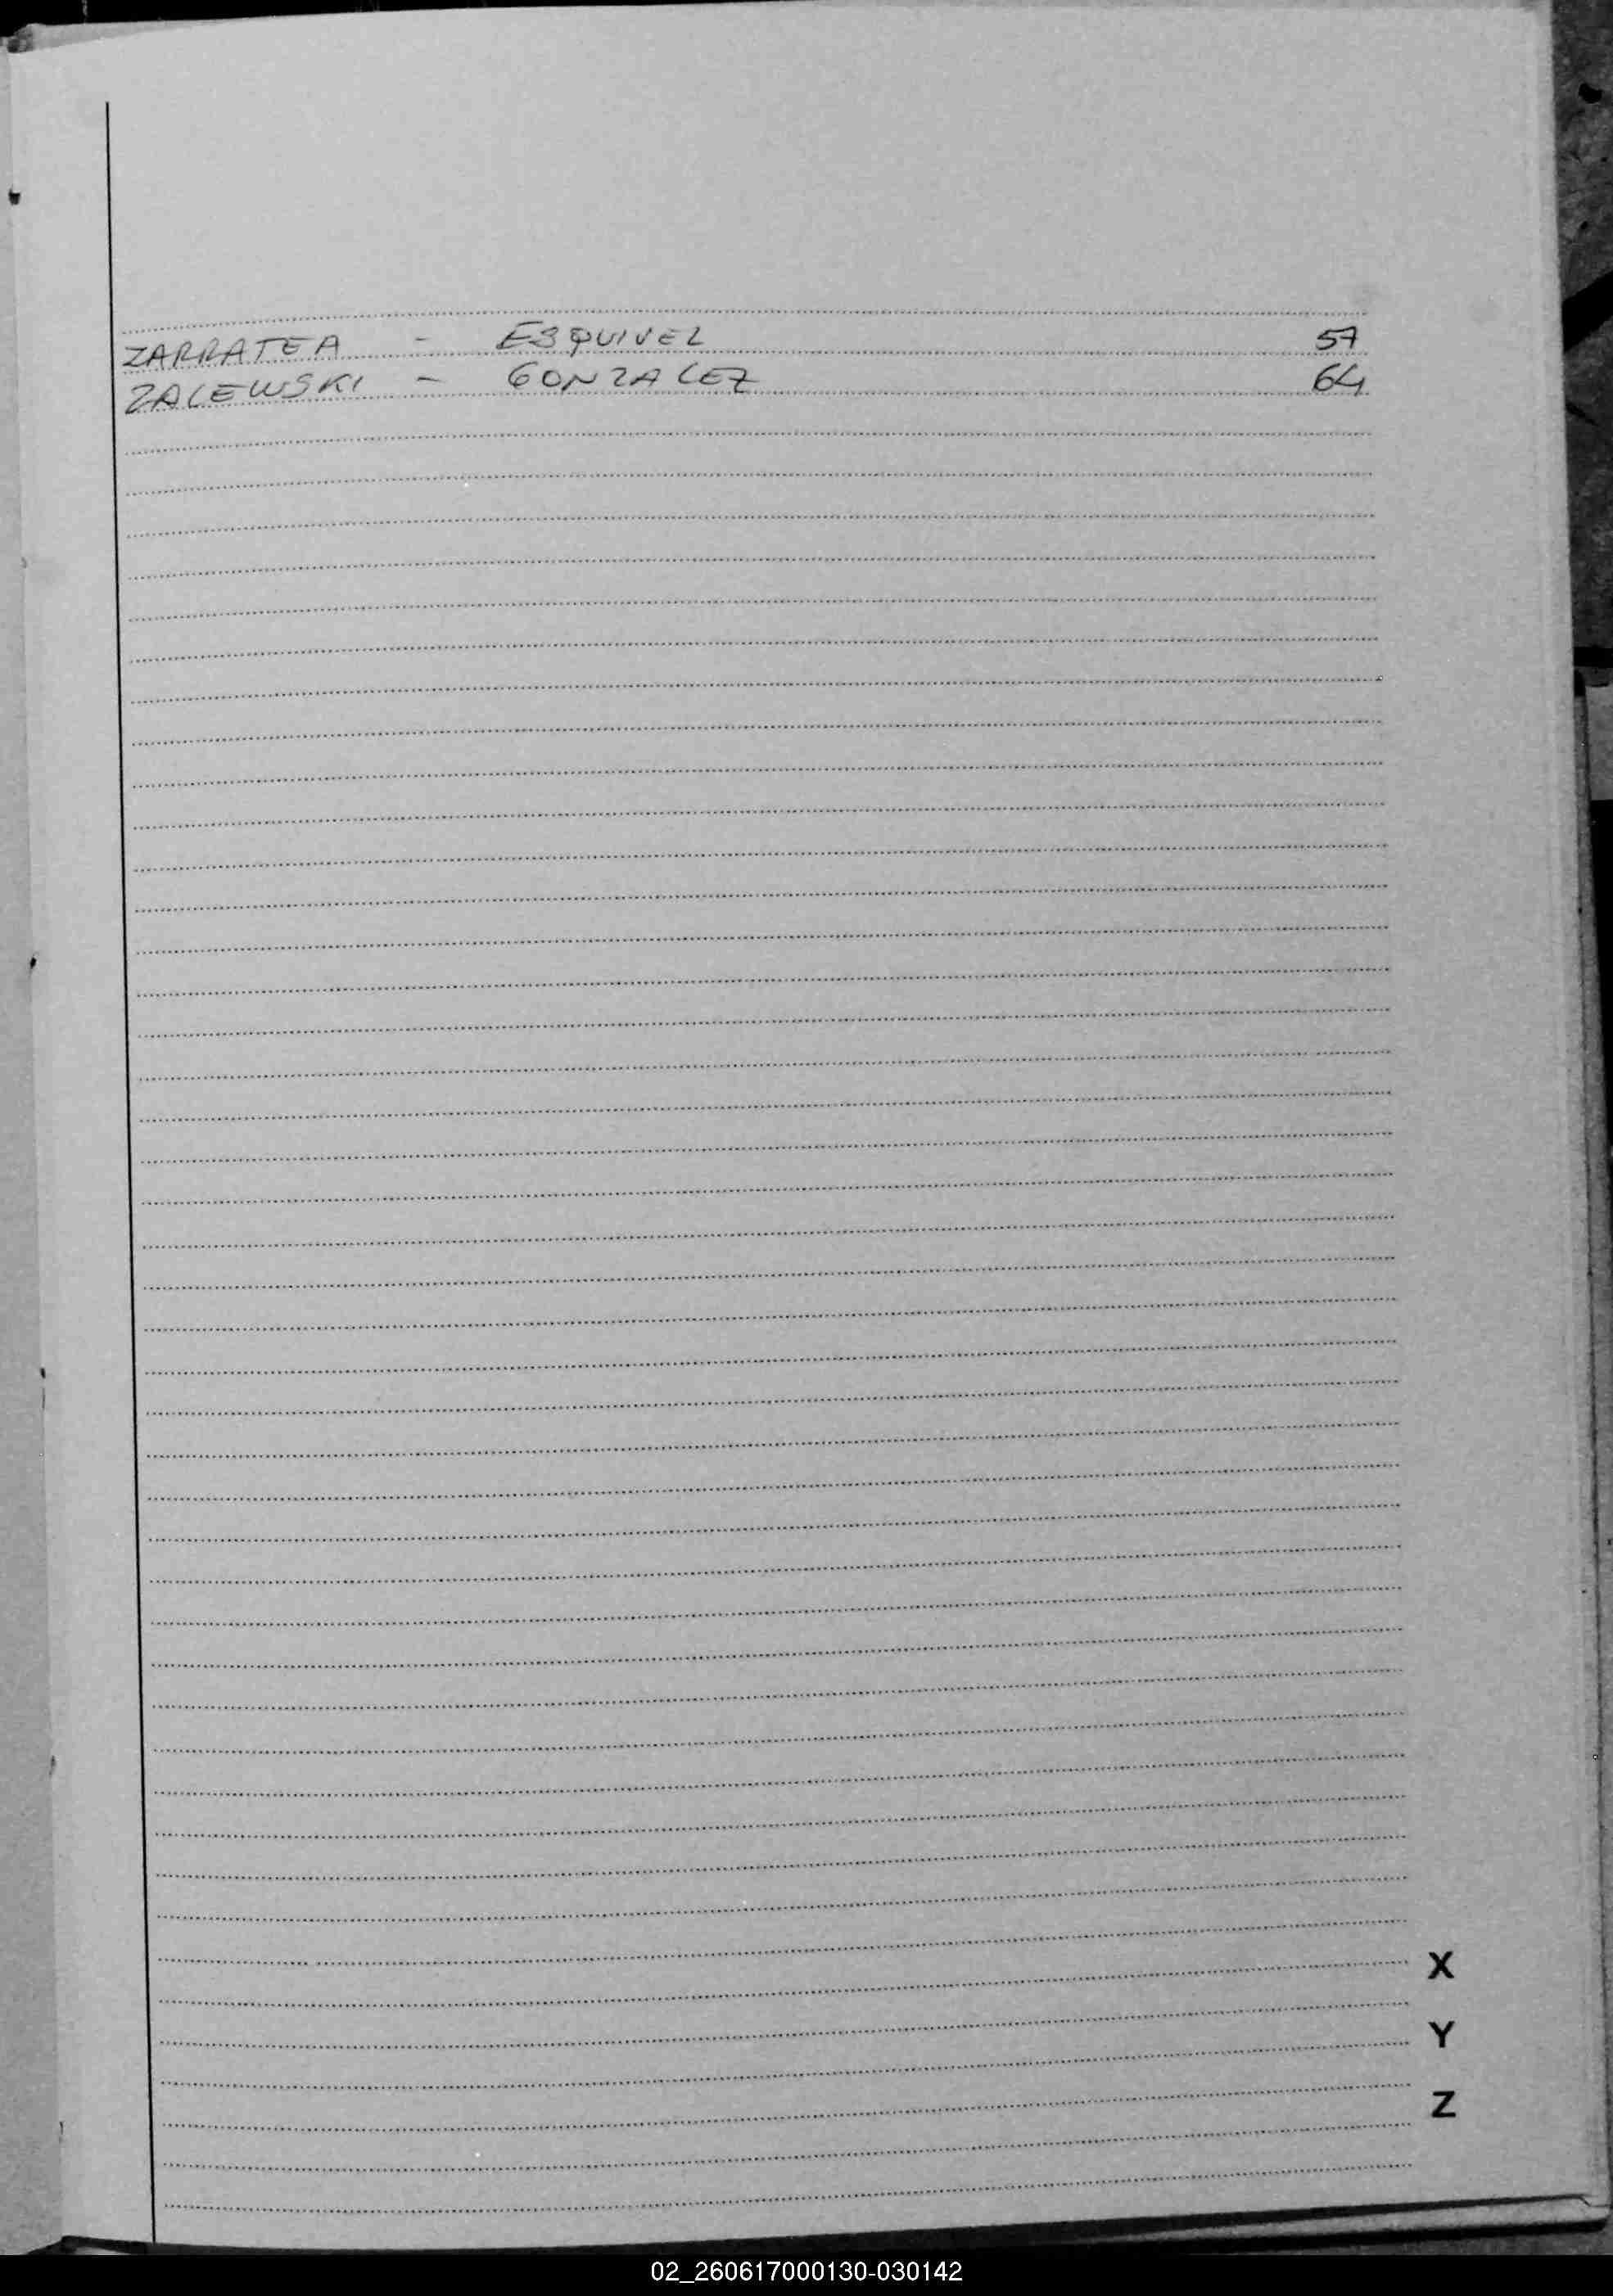 ZARRATEA - ESQUIVEL 57
ZALEWSKI - GONZALEZ 64
X
Y
Z
02_260617000130-030142